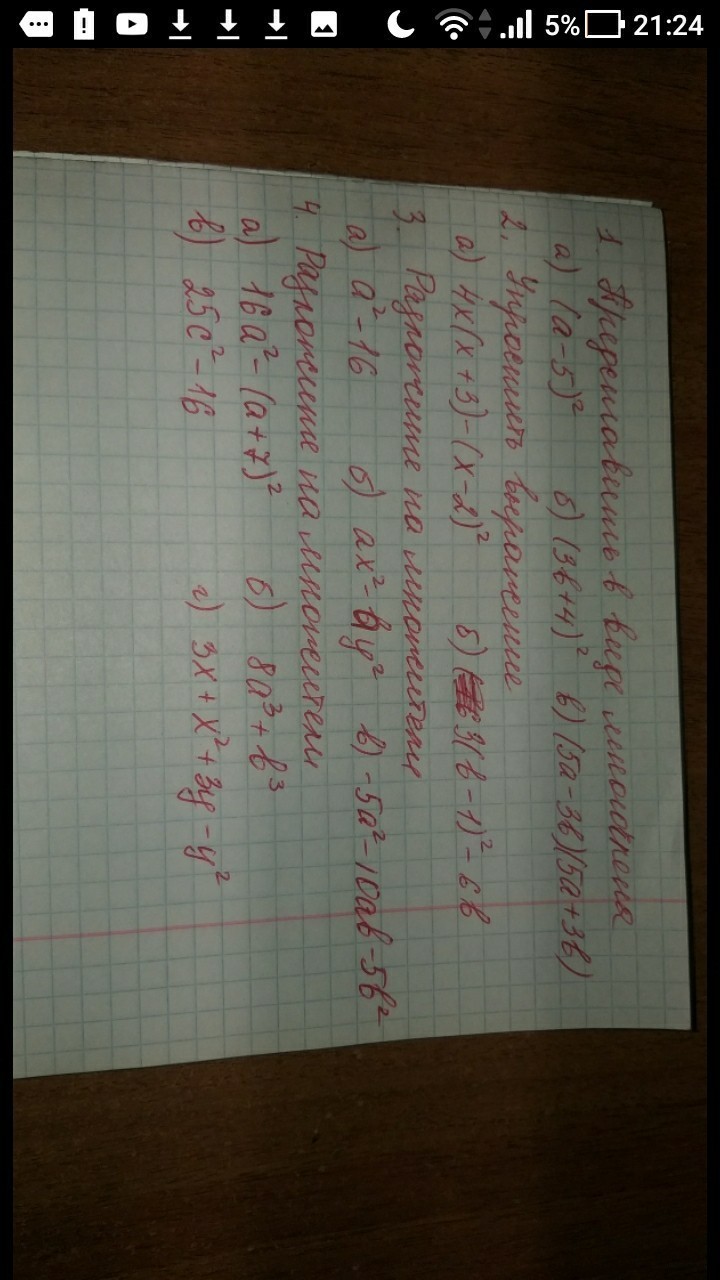 5% 21:24
1. Представить в виде многочлена
а) (a-5)² б) (3b+4)² в) (5a-3b)(5a+3b)
2. Упростить выражение
а) 4x(x+3)-(x-2)² б) 3(b-1)²-6b
3. Разложите на множители
а) a²-16 б) ax²- y² в) -5a²-10ab-5b²
4. Разложите на множители
а) 16a²-(a+7)² б) 8a³+b³
в) 25c²-16 г) 3x+x²+3y-y²